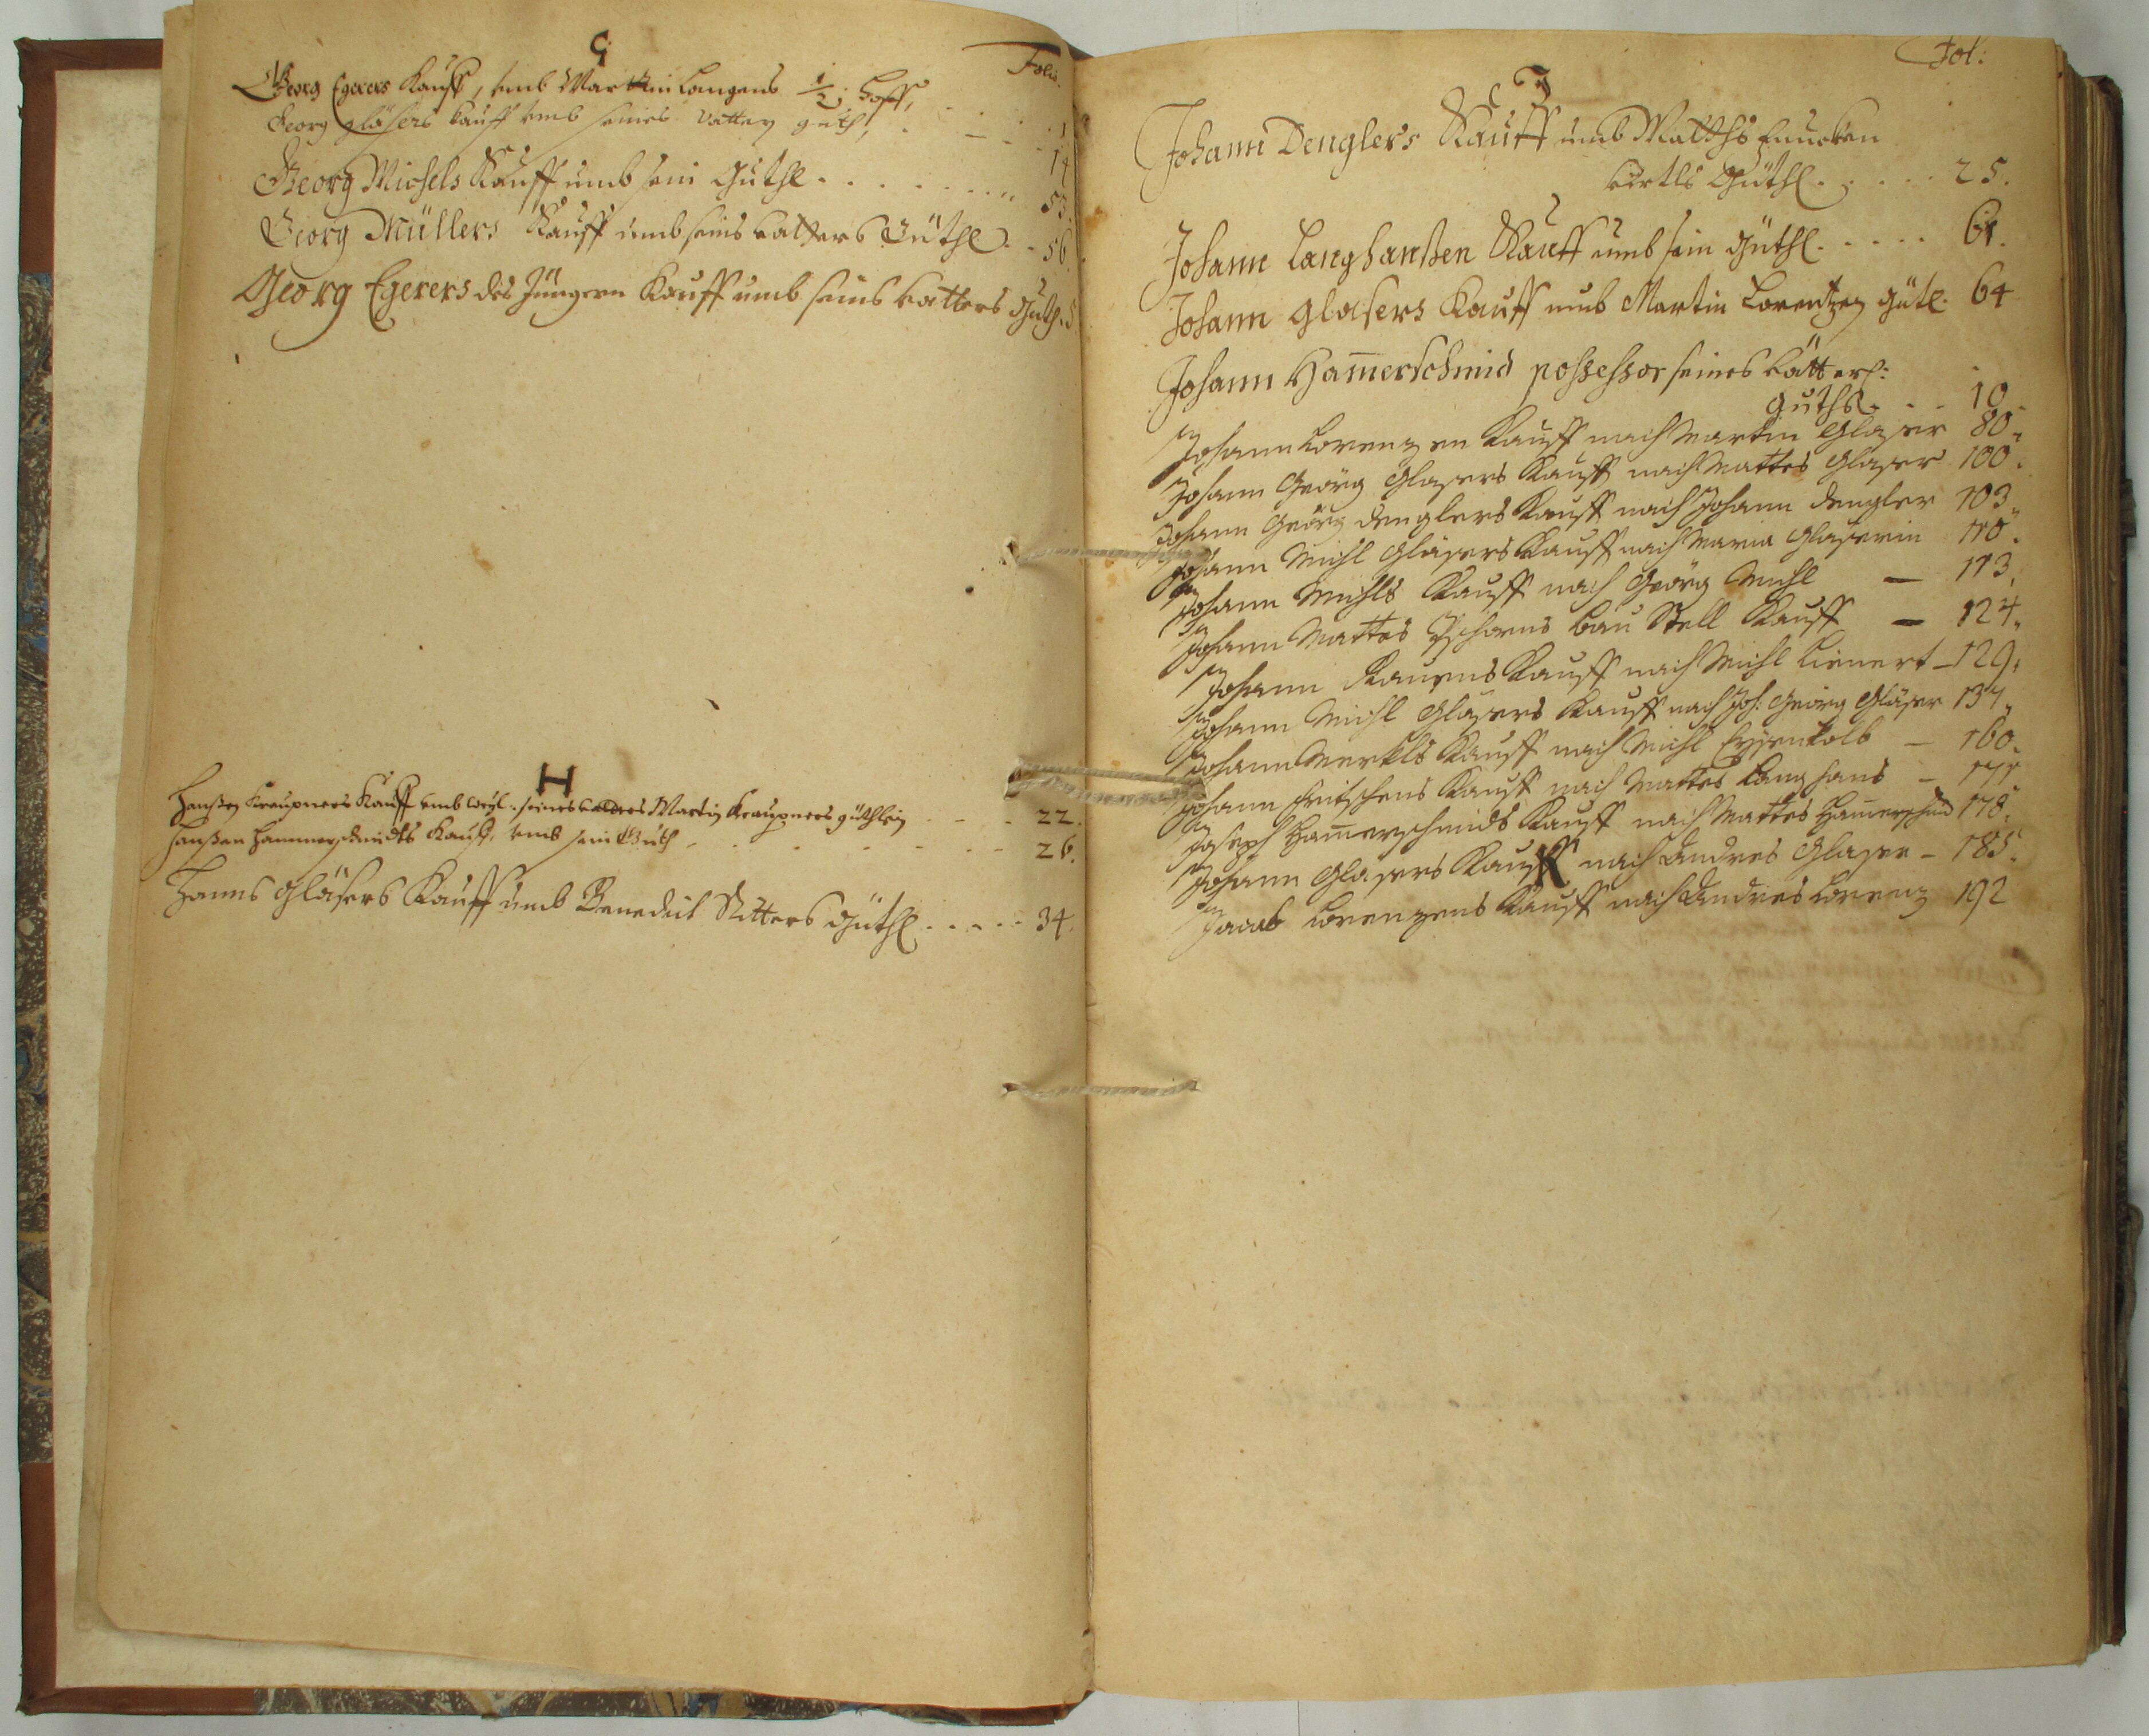 G
Folio.
Georg Egerers Kauff, umb Martin Langens 1/2 Hoff, 1
Georg Gläsers Kauff umb seines Vatters guth, 14
Georg Michels Kauff umb sein Guthl 53
Georg Müllers Kauff umb seins Vatters Güthl 56.
Georg Egerers des Jüngern Kauff umb seins Vatters Güthl
H
Hanßen Kraupners Kauff umb weyl: seines Vatters Martin Kraupners güthlein 22.
Hanßen Hammerschmidts Kauff, umb sein Guth 26.
Hanns Gläsers Kauff umb Benedict Ritters Güthl 34.
J
Fol:
Johann Denglers Kauff umb Matths
Güthl 25.
Johann Langhanßen Kauff umb sein Güthl 61.
Johann Glasers Kauff umb Martin Lorentzen Gütl 64
Johann Ham̄erschmid possessor seines Vätterl:
Guths 10
Johann Lorenzen Kauff nach Martin Glaser 80.
Johann Geörg Glasers Kauff nach Mattes Glaser 100.
Johann Geörg Denglers Kauff nach Johann Dengler 103.
Johann Michl Gläsers Kauff nach Maria Glaserin 110.
Johann Michls Kauff nach Geörg Michl — 113.
Johann Mattes bau Stell Kauff — 124.
Johann Kauff nach Michl Lienert — 129.
Johann Michl Glasers Kauff nach Joh: Geörg Gläser 134.
Johann Merkls Kauff nach Michl Eysenkolb — 160.
Johann Fritschens Kauff nach Mattes Langhans — 171.
Joseph Ham̄erschmids Kauff nach Mattes Ham̄erschmid 178.
Johann Glasers Kauff nach Andres Glaser — 185.
Jacob Lorenzens Kauff nach Andres Lorenz 192